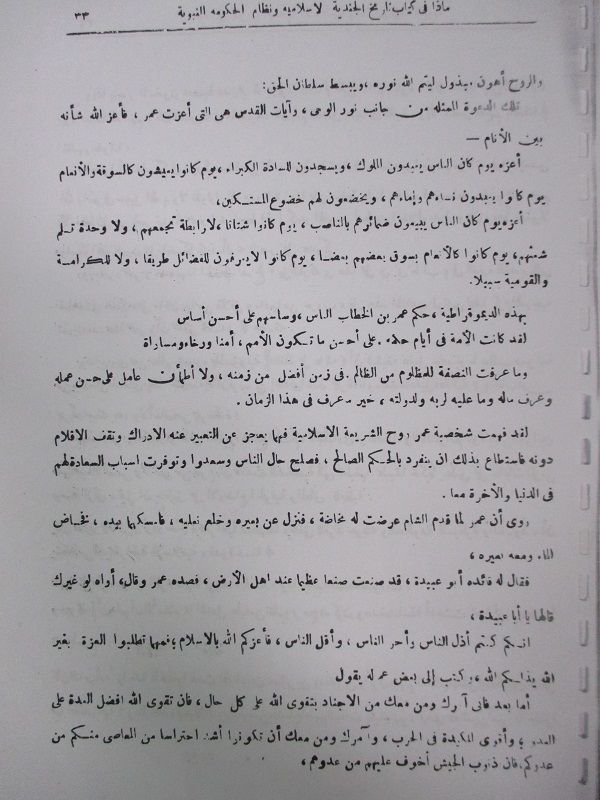 ماذا فى كتاب تاريخ الجندية الاسلاميه ونظام الحكومه النبوية ٣٣
والروح أهون مبذول ليتم الله نوره ، ويبسط سلطان الحق:
تلك الدعوة المثله من جانب نور الوحى ، وآيات القدس هى التى أعزت عمر ، فأعز الله شأنه
بين الأنام —
أعزه يوم كان الناس يعبدون الملوك ، ويسجدون للسادة الكبراء ، يوم كانوا يعيشون كالسوقة والأنعام
يوم كانوا يعبدون نساءهم وإماءهم ، ويخضعون لهم خضوع المستكين ،
أعزه يوم كان الناس يبيعون ضمائرهم بالناصب ، يوم كانوا شتانا ، لارابطة تجمعهم ، ولا وحدة تلم
شعثهم ، يوم كانوا كالأنعام يسوق بعضهم بعضا ، يوم كانوا لايعرفون للفضائل طريقا ، ولا للكرامة
والقومية سبيلا.
بهذه الديموقراطية ، حكم عمر بن الخطاب الناس ، وساسهم على أحسن أساس
لقد كانت الأمة فى أيام على أحسن ما تكون الأمم ، أمنا ورخاء ومساواة
وما عرفت النصفة للمظلوم من الظالم فى زمن أفضل من زمنه ، ولا أطمأن عامل على حسن عمله
وعرف ماله وما عليه لربه ولدولته ، خير معرف فى هذا الزمان .
لقد فهمت شخصية عمر روح الشريعة الاسلامية فهما يعجز عن التعبير عنه الادراك وتقف الاقلام
دونه فاستطاع بذلك ان ينفرد بالحكم الصالح ، فصلح حال الناس وسعدوا وتوفرت اسباب السعادة لهم
فى الدنيا والآخرة معا .
روى أن عمر لما قدم الشام عرضت له مخاضة ، فنزل عن بعيره وخلع نعليه ، فامسكهما بيده ، فخاض
الماء ومعه بعيره ،
فقال له قائده أبو عبيدة ، قد صنعت صنعا عظيما عند اهل الأرض ، فصده عمر وقال، أواه لو غيرك
قالها يا أبا عبيدة ،
انكم كنتم أذل الناس وأحقر الناس ، وأقل الناس ، فأعزكم الله بالاسلام ، فمهما تطلبوا العزة بغير
الله يذلكم الله ، وكتب إلى بعض عماله يقول
أما بعد فانى آمرك ومن معك من الاجناد بتقوى الله على كل حال ، فان تقوى الله افضل العدة على
العدو ، وأقوى المكيدة فى الحرب ، وآمرك ومن معك أن تكونوا أشد احتراسا من المعاصى منكم من
عدوكم فان ذنوب الجيش أخوف عليهم من عدوهم ،